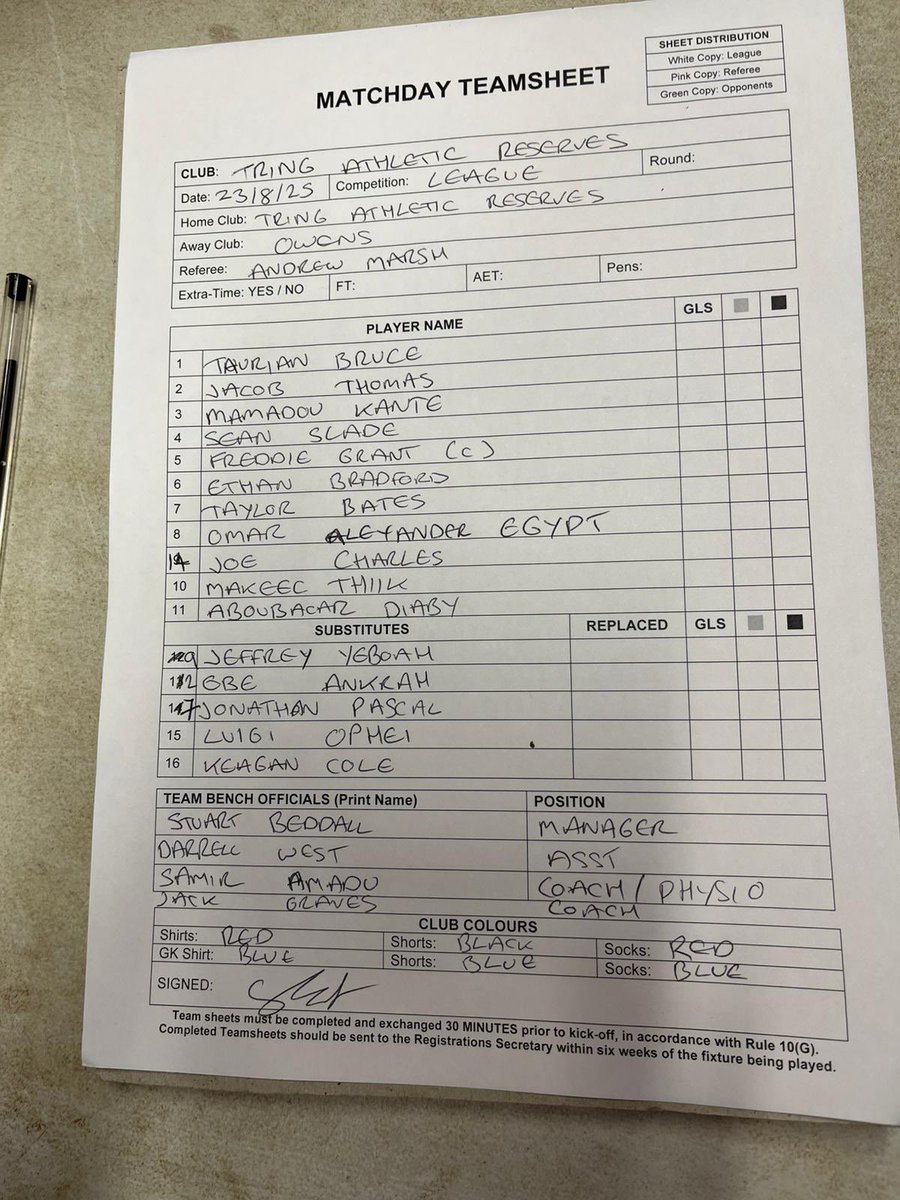 SHEET DISTRIBUTION
White Copy: League
Pink Copy: Referee
Green Copy: Opponents
MATCHDAY TEAMSHEET
CLUB: TRING ATHLETIC RESERVES
Date: 23/8/25 Competition: LEAGUE Round:
Home Club: TRING ATHLETIC RESERVES
Away Club: OWENS
Referee: ANDREW MARSH
Extra-Time: YES / NO FT: AET: Pens:
PLAYER NAME GLS
1 TAURIAN BRUCE
2 JACOB THOMAS
3 MAMADOU KANTE
4 SEAN SLADE
5 FREDDIE GRANT (C)
6 ETHAN BRADFORD
7 TAYLOR BATES
8 OMAR ALEXANDER EGYPT
JOE CHARLES
10 MAKEEC THIIK
11 ABOUBACAR DIABY
SUBSTITUTES REPLACED GLS
9 JEFFREY YEBOAH
12 GBE ANKRAH
17 JONATHAN PASCAL
15 LUIGI OPHEI
16 KEAGAN COLE
TEAM BENCH OFFICIALS (Print Name) POSITION
STUART BEDDALL MANAGER
DARRELL WEST ASST
SAMIR AMADU COACH / PHYSIO
JACK GRAVES COACH
CLUB COLOURS
Shirts: RED Shorts: BLACK Socks: RED
GK Shirt: BLUE Shorts: BLUE Socks: BLUE
SIGNED:
Team sheets must be completed and exchanged 30 MINUTES prior to kick-off, in accordance with Rule 10(G).
Completed Teamsheets should be sent to the Registrations Secretary within six weeks of the fixture being played.